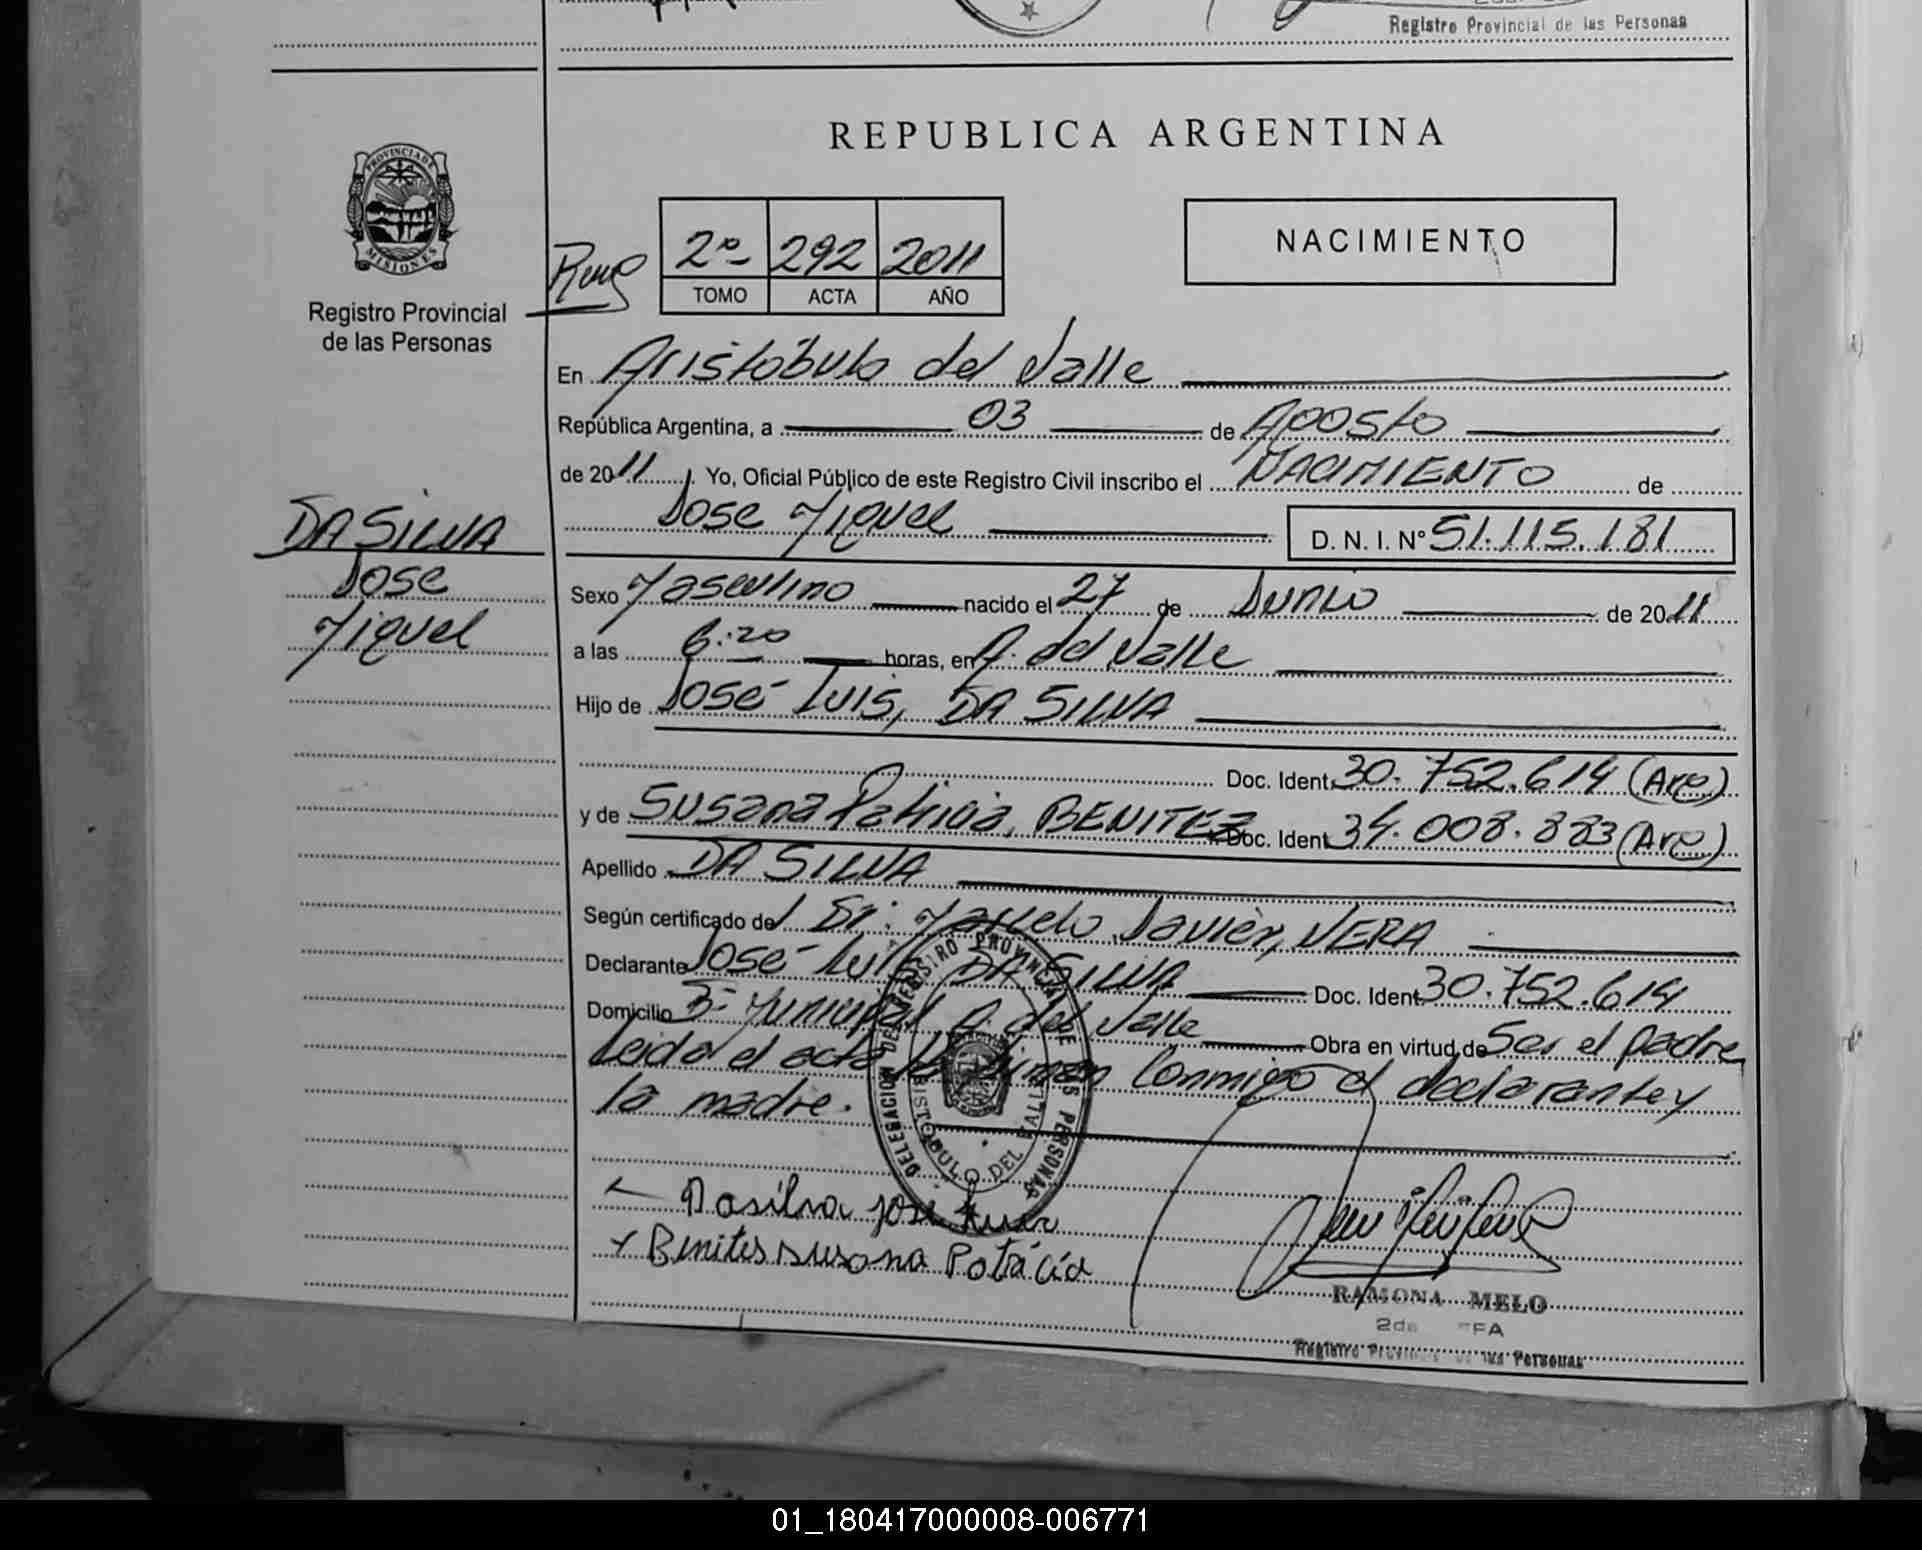 Registro Provincial de las Personas
REPUBLICA ARGENTINA
PROVINCIA DE
MISIONES
Registro Provincial
de las Personas
2º 292 2011
TOMO ACTA AÑO
NACIMIENTO
En Aristóbulo del Valle
República Argentina, a 03 de Agosto
de 2011. Yo, Oficial Público de este Registro Civil inscribo el NACIMIENTO de
Jose Miguel D. N. I. N° 51.115.181
DA SILVA
Jose
Miguel
Sexo Masculino nacido el 27 de Junio de 2011
a las 6:20 horas, en A. del Valle
Hijo de José Luis, DA SILVA
Doc. Ident. 30.752.614 (Arg)
y de Susana Patricia, BENITEZ Doc. Ident. 34.008.883 (Arg)
Apellido DA SILVA
Según certificado del Dr: Marcelo Javier, VERA
Declarante José Luis DA SILVA Doc. Ident. 30.752.614
Domicilio Bº Municipal A. del Valle Obra en virtud de Ser el padre
Leida el acta la firman Conmigo el declarante y
la madre.
DELEGACION DEL REGISTRO PROVINCIAL DE LAS PERSONAS
ARISTOBULO DEL VALLE
Dasilva José Luis
Benites susana Patricia
RAMONA MELO
2da
Registro Provincial de las Personas
01_180417000008-006771